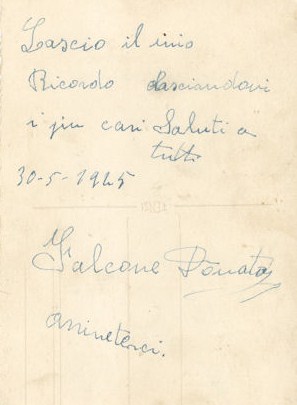 Lascio il mio
Ricordo lasciandovi
i piu cari Saluti a
tutti
30-5-1945
Falcone Donato